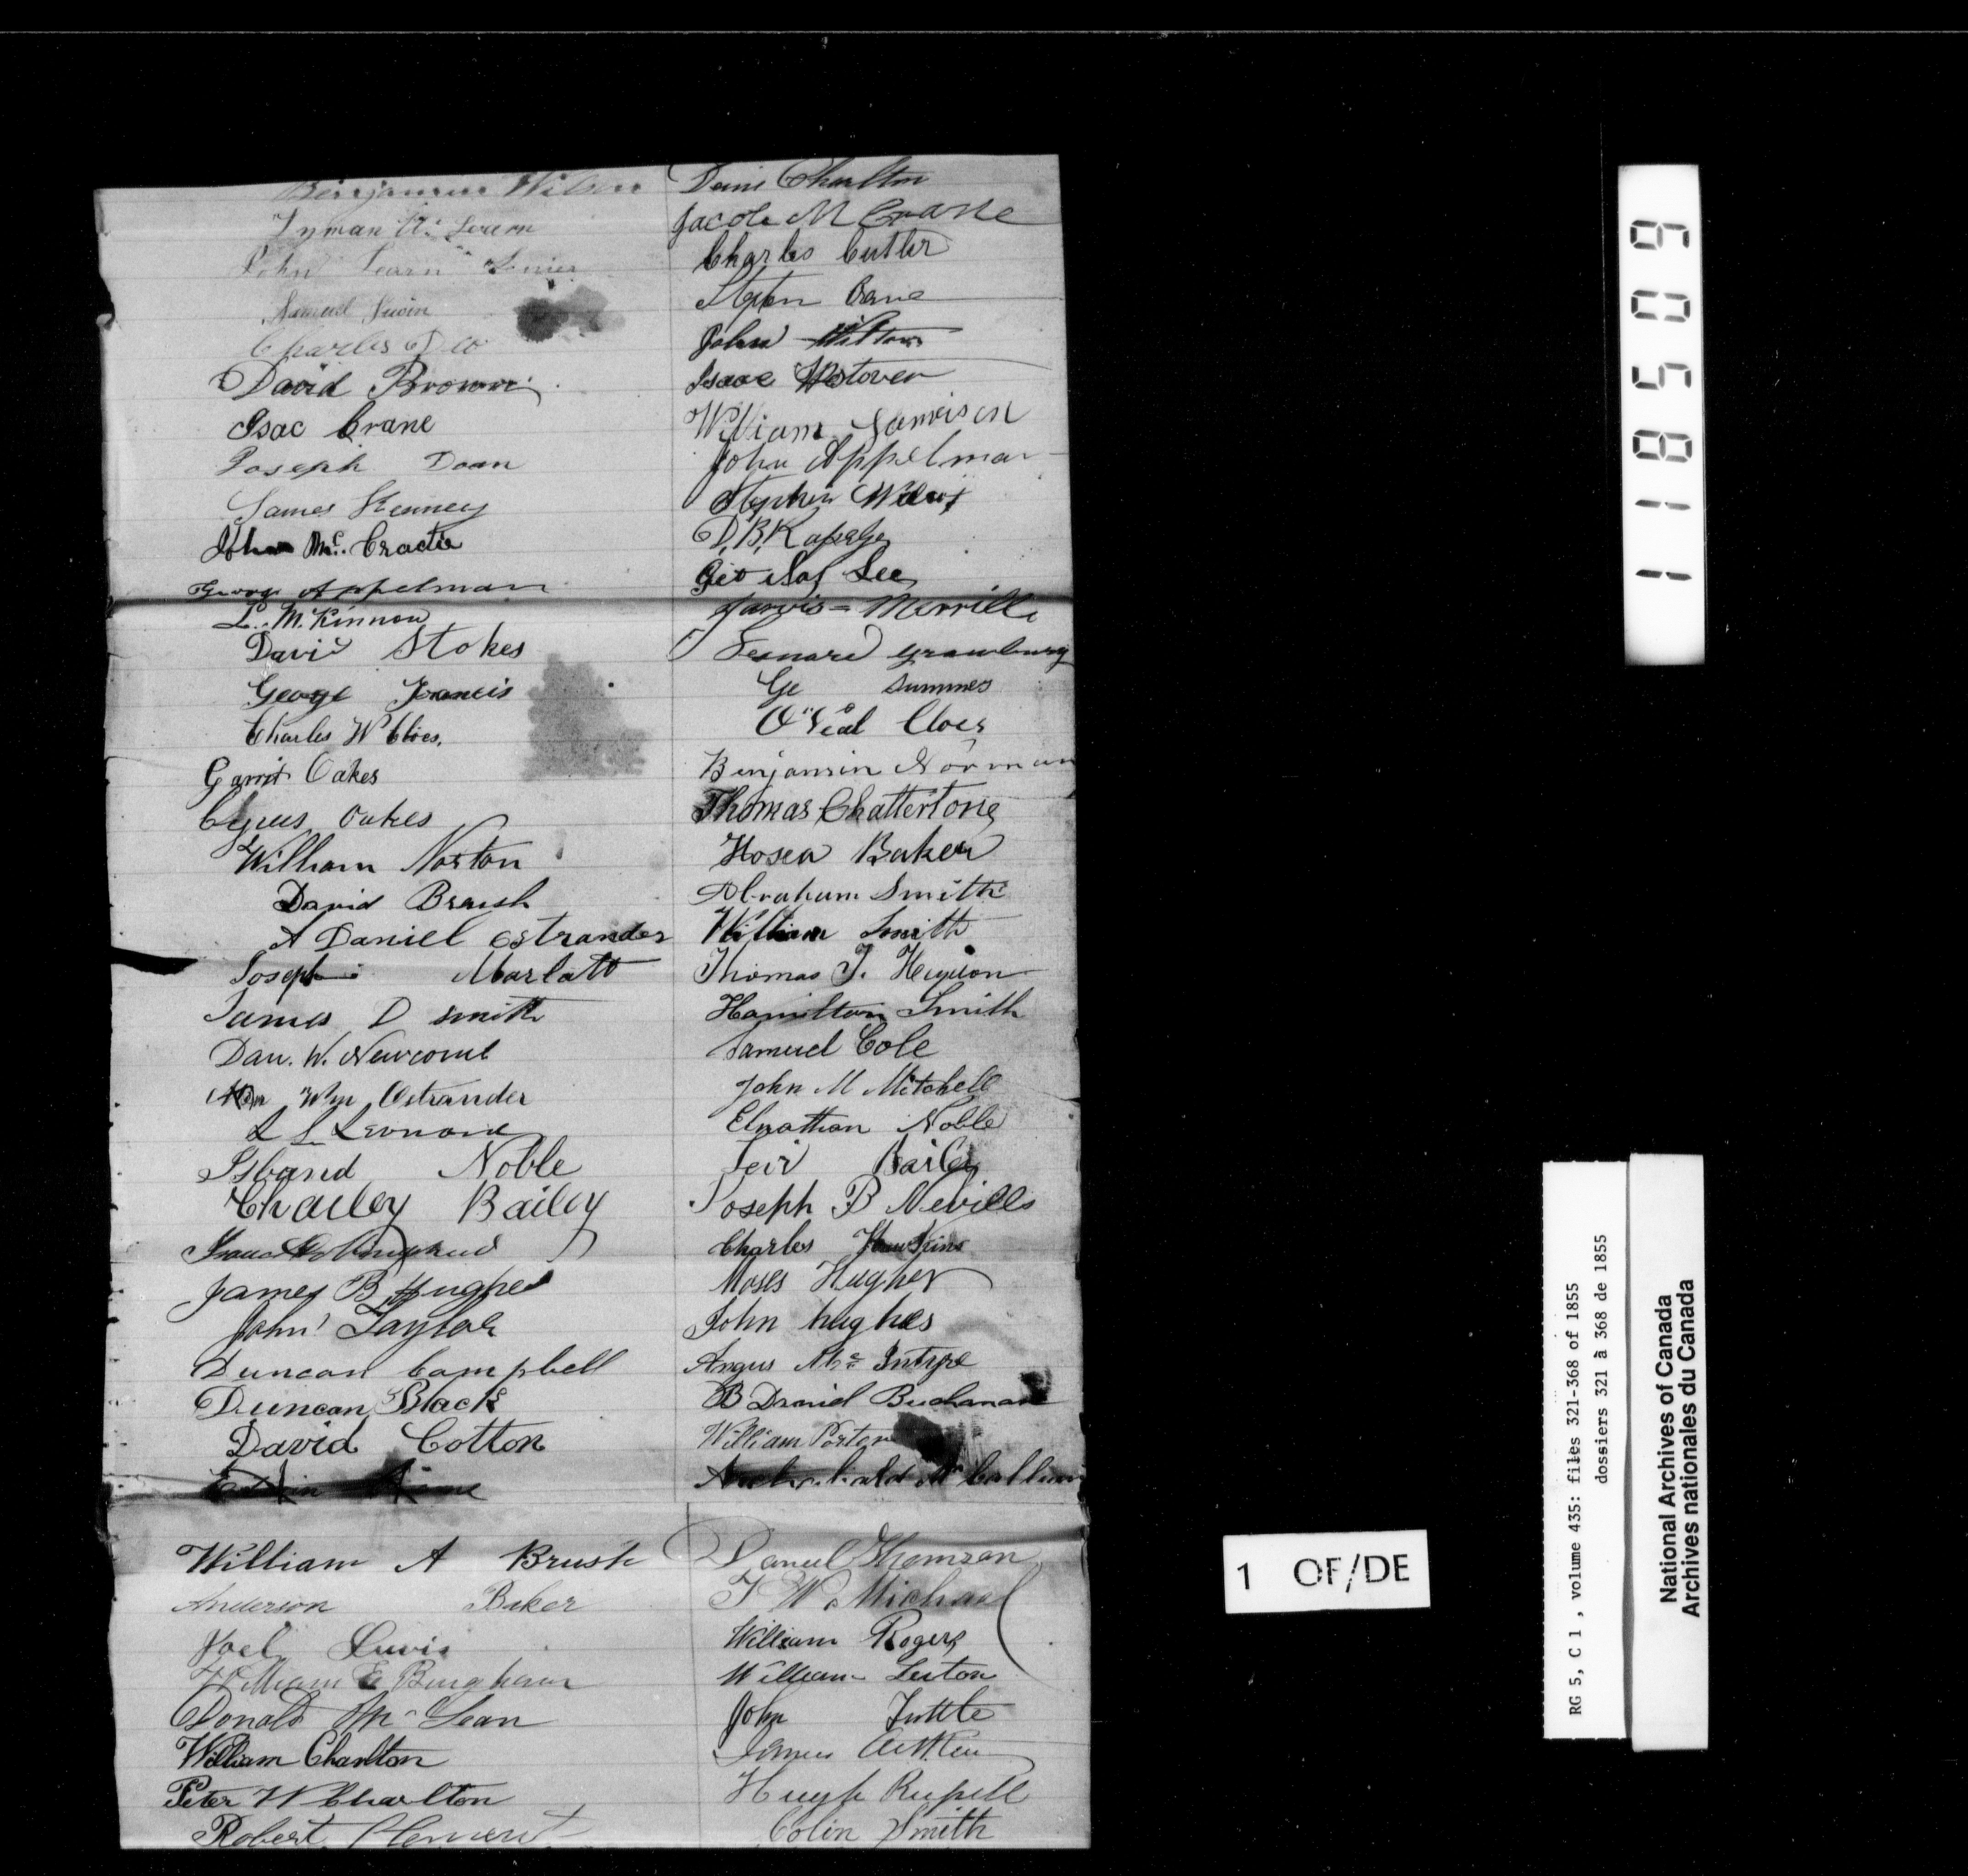 Benjamin Wilson
Lyman
John Learn
Samuel
Charles
David Brown
Isac Crane
Joseph Doan
James Kenney
John Mc. Cractie
George Appelman
L. McKinnon
David Stokes
George Francis
Charles W Cloes.
Garrit Oakes
Cyrus Oakes
William Norton
David Brush
A Daniel Ostrander
Joseph Marlatt
James D Smith
Dan. W. Newcomb
Wm Ostrander
L L Leonard
Noble
Charley Bailey
Isaac
James B Hughes
John Taylor
Duncan Campbell
Duncan Black
David Cotton
William A Brush
Anderson Baker
Joel Lewis
William E Bingham
Donald Mc Lean
William Charlton
Peter W Charlton
Robert Clement
Charlton
Jacob M Crane
Charles Cutler
Stepten Crane
John Wilton
Isaac Westover
William Jamison
John Appelman
Stephen
D, B, K
Lee
Jarvis Merrill
Leonard
Ge Summes
O'Neal Cloes
Benjamin Norman
Thomas Chattertone
Hosea Baker
Abraham Smith
William Smith
Thomas J.
Hamilton Smith
Samuel Cole
John M Mitchell
Elnathan Noble
Bailey
Joseph B Nevills
Charles Hawkins
Moses Hughes
John hughes
Angus Mc Intyre
B Daniel Buchanan
William Porter
Archibald Mc Callum
Daniel Thomson
W Michael
William Rogers
William Luton
John Tuttle
James Aitken
Hugh Russell
Colin Smith
118509
1 OF/DE
RG 5, C 1 , volume 435: files 321-368 of 1855
dossiers 321 à 368 de 1855
National Archives of Canada
Archives nationales du Canada